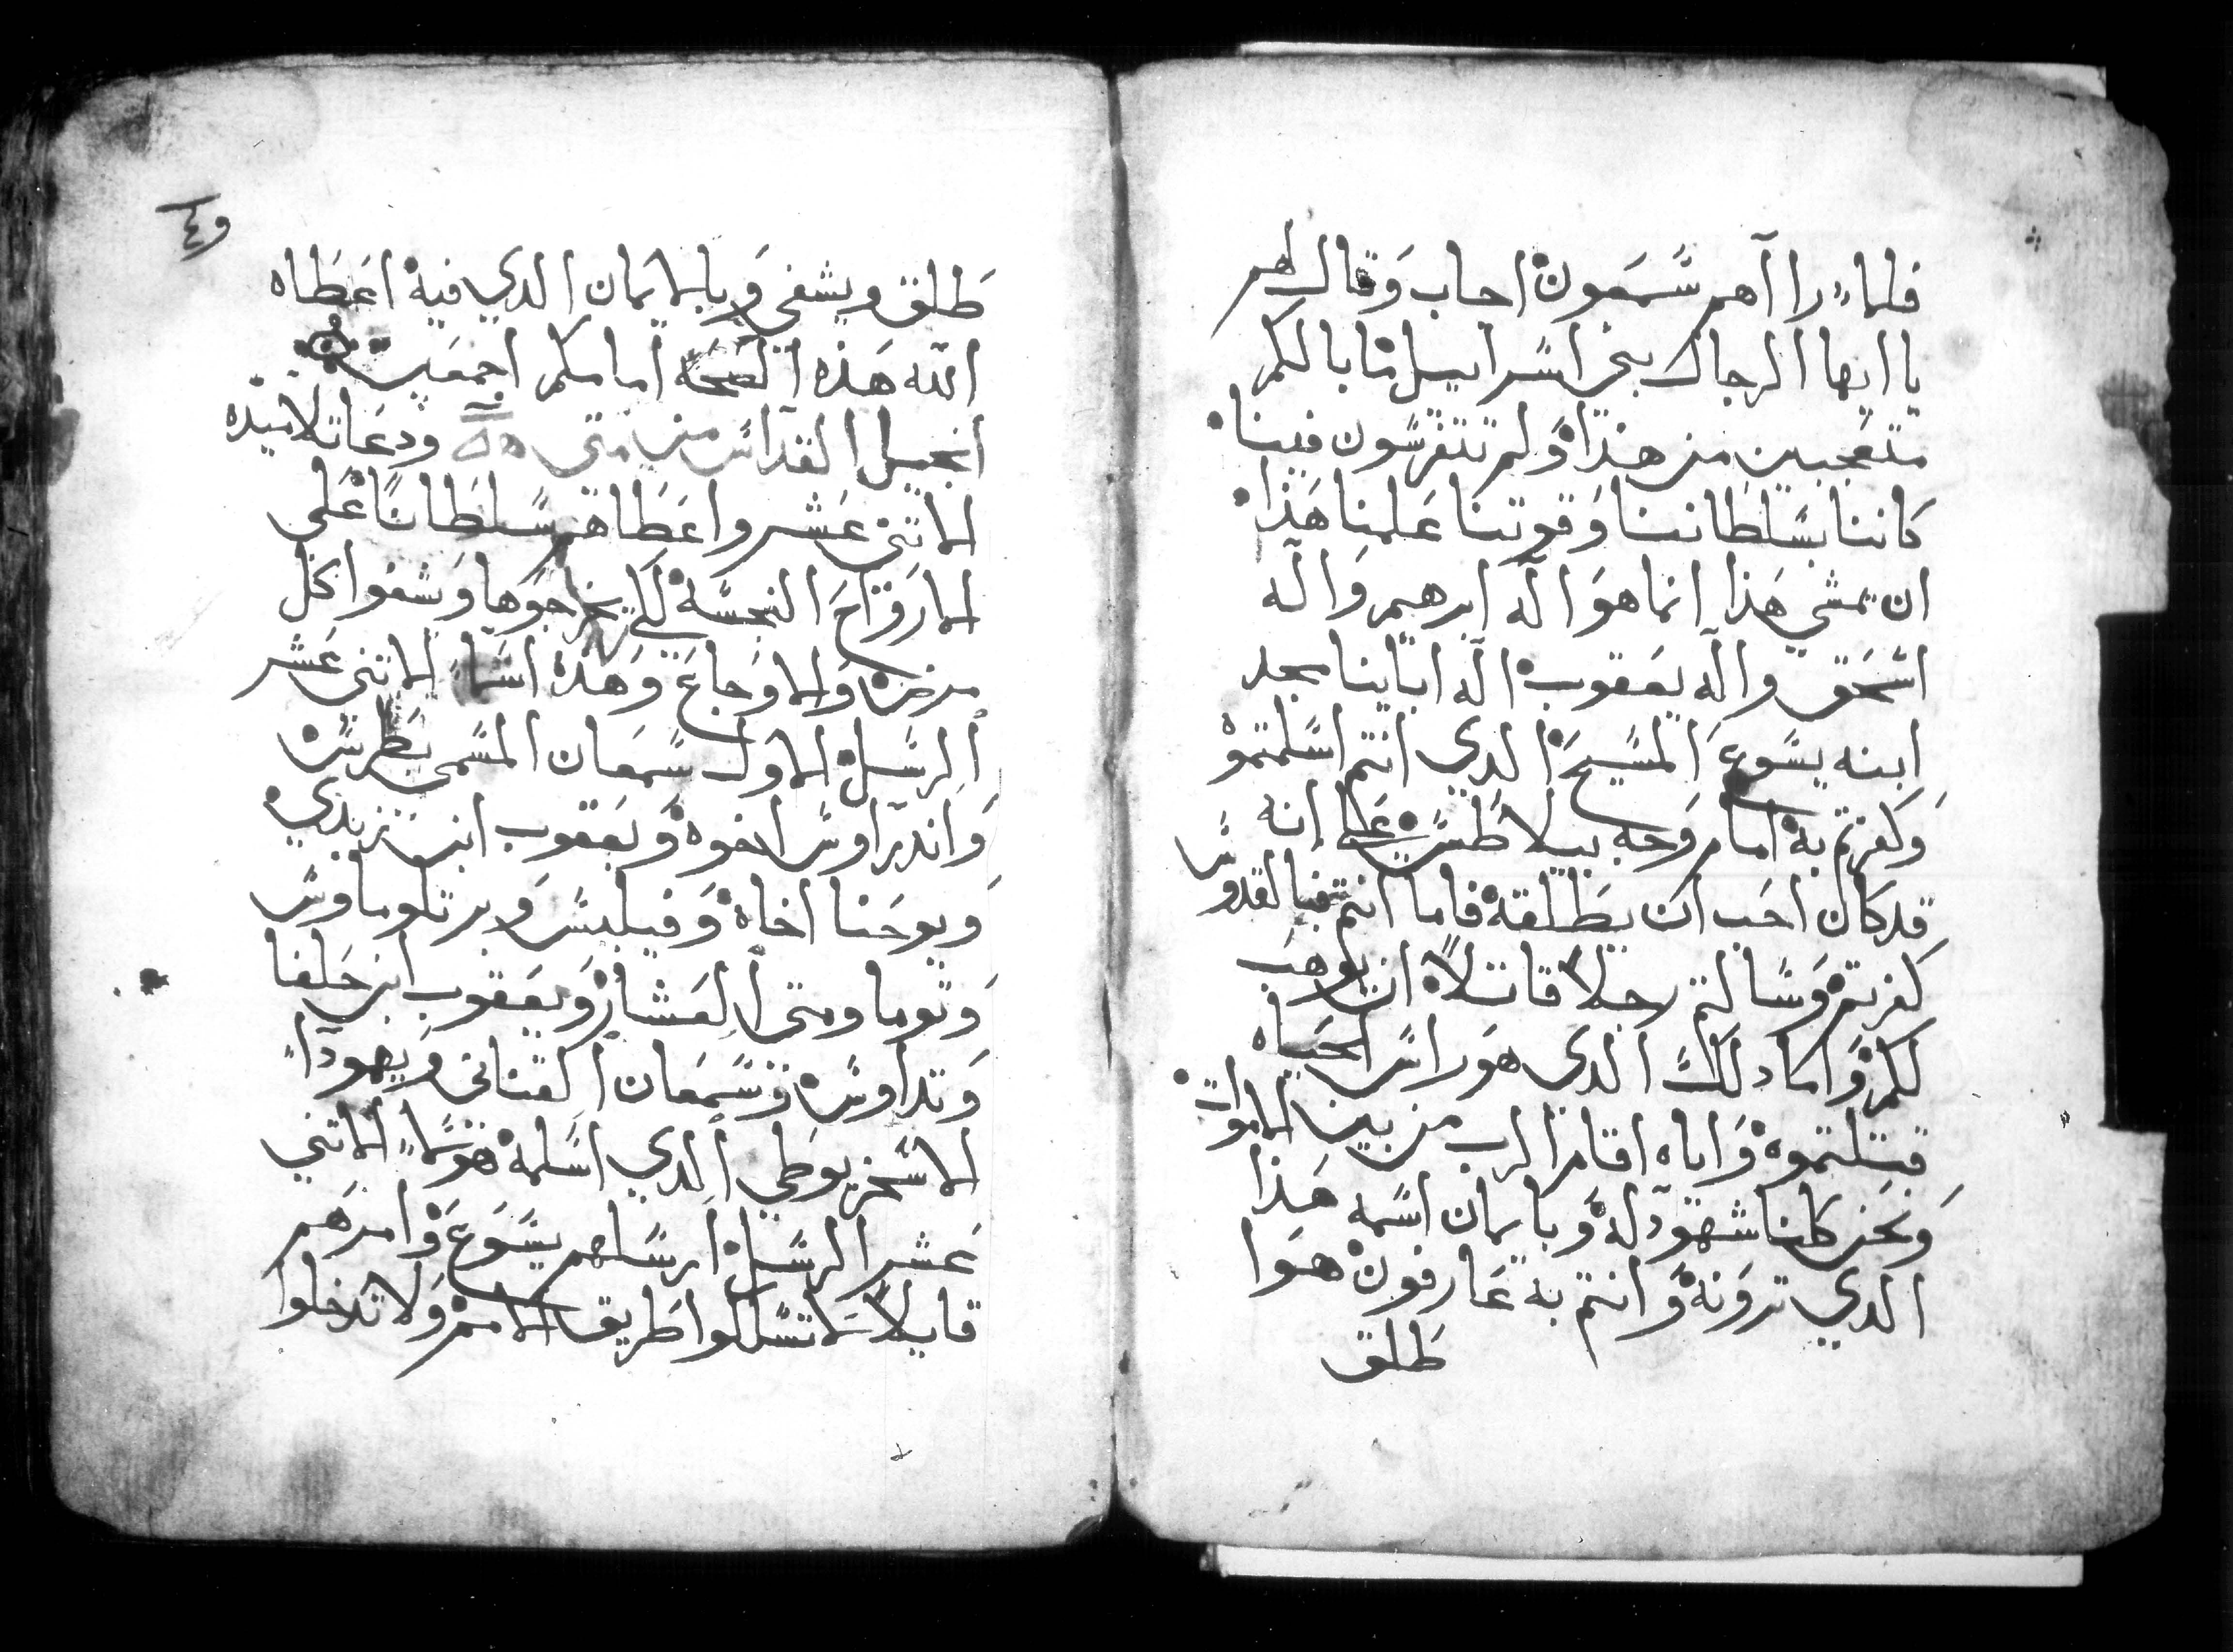 فلما راآهم شمعون اجاب وقال لهم
يا ايها الرجال بني اسراييل ما بالكم
متعجبين من هذا ولم تتفرسون فينا
كاننا بسلطاننا وقوتنا عملنا هذا
ان يمشي هذا انما هو اله ابرهيم واله
اسحق واله يعقوب اله اباينا مجد
ابنه يسوع المسيح الدي انتم اسلمتموه
وكفرتم به امام وجه بيلاطس على انه
قد كان احب ان يطلقه فاما انتم فبالقدوس
كفرتم وسالتم رجلا قاتلا ان يوهب
لكم واما دلك الدي هو راس الحياه
قتلتموه واياه اقام الرب من بين الاموات
ونحن كلنا شهود له وبايمان اسمه هذا
الدي ترونه وانتم به عارفون هوا
طلق
و٤
طلق ويشفي وبالايمان الدي فيه اعطاه
الله هذه الصحه امامكم اجمعين
انجيل القداس من متى ودعا تلاميذه
الاتني عشر واعطاهم سلطانا على
الارواح النجسة لكي يخرجوها ويشفوا كل
مرض والاوجاع وهده اسما الاتني عشر
الرسل الاول سمعان المسمى بطرس
واندراوس اخوه ويعقوب ابن زبدي
ويوحنا اخاه وفيلبس وبرتلوماوس
وتوما ومتى العشار ويعقوب ابن حلفا
وتداوس وسمعان القناني ويهودا
الاسخريوطي الدي اسلمه هولا الاتني
عشر الرسل ارسلهم يسوع وامرهم
قايلا لاتسلكوا طريق الامم ولا تدخلوا